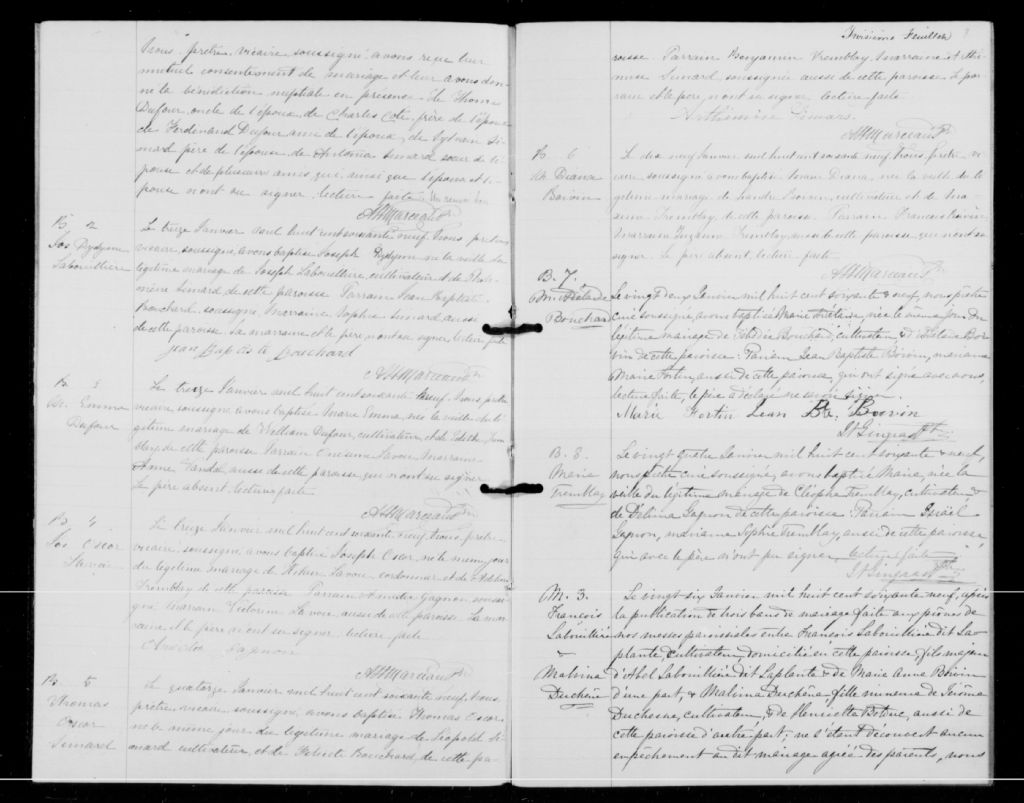 Nous, prêtre, vicaire, soussigné avons reçu leur
mutuel consentement de mariage et leur avons don-
né la bénédiction nuptiale en présence de Thomas
Dufour, oncle de l'époux, de Charles Coté, frère de l'époux
de Ferdinand Dufour, ami de l'époux, de Sylvain Si-
mard père de l'épouse, de Antonia Simard sœur de l'é-
pouse et de plusieurs amis qui, ainsi que l'époux et l'é-
pouse n'ont su signer, lecture faite
AHMarceau Ptre
B. 2
Jos
Labouillière
Le treize Janvier mil huit cent soixante neuf, nous prêtre
vicaire, soussigné, avons baptisé Joseph né la veille du
légitime mariage de Joseph Labouillière, cultivateur et de Philo-
mène Simard de cette paroisse Parrain Jean Baptiste
Bouchard soussigné, Marraine Sophie Simard aussi
de cette paroisse la marraine et le père n'ont su signer, lecture faite
Jean Baptiste Bouchard
AHMarceau Ptre
B. 3
M. Emma
Dufour
Le treize Janvier mil huit cent soixante neuf, nous prêtre
vicaire, soussigné avons baptisé Marie Emma, née la veille du lé-
gitime mariage de William Dufour, cultivateur, et de Edith Trem-
blay de cette paroisse Parrain Onésime Savoie Marraine
Anne aussi de cette paroisse qui n'ont su signer
Le père absent, lecture faite
AHMarceau Ptre
B. 4
Jos Oscar
Lavoie
Le treize Janvier mil huit cent soixante neuf, nous, prêtre
vicaire, soussigné avons baptisé Joseph Oscar, né le même jour
du légitime mariage de Lavoie, cordonnier et de
Tremblay de cette paroisse Parrain Gagnon, soussi-
gné, Marraine Victorine Lavoie aussi de cette paroisse La mar-
raine et le père n'ont su signer, lecture faite
Gagnon
AHMarceau Ptre
B. 5
Thomas
Oscar
Simard
Le quatorze Janvier mil huit cent soixante neuf, nous,
prêtre, vicaire, soussigné, avons baptisé Thomas Oscar,
né le même jour du légitime mariage de Léopold Si-
mard cultivateur et de Félicité Bouchard, de cette pa-
Troisième Feuillet
roisse. Parrain Benjamin Tremblay, Marraine Arthé-
mise Simard soussignée aussi de cette paroisse Le par-
rain et le père n'ont su signer, lecture faite
Arthémise Simard.
AHMarceau Ptre
B. 6
M. Diana
Boivin
Le dix neuf Janvier mil huit cent soixante neuf, nous prêtre vi-
caire soussigné avons baptisé Marie Diana, née la veille du lé-
gitime mariage de Boivin, cultivateur et de
Tremblay de cette paroisse. Parrain Francois Boivin
Marraine Suzanne Tremblay, aussi de cette paroisse qui n'ont su
signer. Le père absent, lecture faite
AHMarceau Ptre
B. 7.
M. Adélaïde
Bouchard
Le vingt deux Janvier mil huit cent soixante & neuf, nous prêtre
curé soussigné, avons baptisé Marie née le même jour du
légitime mariage de Bouchard, cultivateur, & d' Boi-
vin de cette paroisse: Parrain Jean Baptiste Boivin, marraine
Marie Fortin, aussi de cette paroisse, qui ont signé avec nous,
lecture faite, le père a déclaré ne savoir signer.
Marie Fortin Jean Bte. Boivin
Gingras Ptre
B. 8.
Marie
Tremblay
Le vingt quatre Janvier mil huit cent soixante & neuf,
nous prêtre curé soussigné, avons baptisé Marie, née la
veille du légitime mariage de Cléophe Tremblay, cultivateur &
de Délima Gagnon de cette paroisse: Parrain Israël
Gagnon, marraine Sophie Tremblay, aussi de cette paroisse
qui avec le père n'ont pu signer, lecture faite
Gingras Ptre
M. 3.
François
Labouillière
&
Malvina
Duchêne
Le vingt six Janvier mil huit cent soixante neuf, après
la publication de trois bans de mariage faite aux prônes de
nos messes paroissiales entre François Labouillière dit La-
plante, cultivateur, domicilié en cette paroisse, fils majeur
d'Abel Labouillière dit Laplante & de Marie Anne Boivin
d'une part, & Malvina Duchêne, fille mineure de Jérôme
Duchesne, cultivateur, & de Henriette Bolduc, aussi de
cette paroisse d'autre part; ne s'étant découvert aucun
empêchement au dit mariage agréé des parents, nous